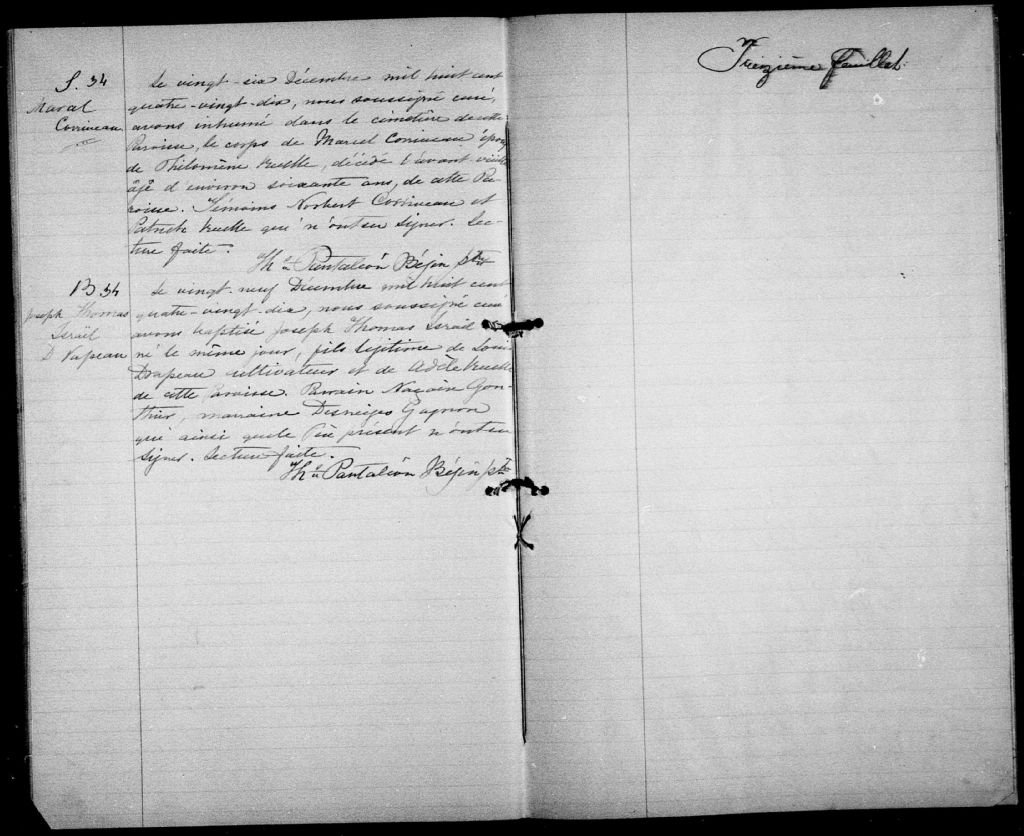 S. 34
Marcel
Corriveau
Le vingt-six Décembre mil huit cent
quatre-vingt-dix, nous soussigné curé,
avons inhumé dans le cimetière de cette
Paroisse, le corps de Marcel Corriveau époux
de Philomène Ruelle, décédé l'avant veille
âgé d'environ soixante ans, de cette Pa-
roisse. Témoins Norbert Corriveau et
Patrick Ruelle qui n'ont su signer. Lec-
ture faite.
Ths Pantaléon Bégin ptre
B 34
Joseph Thomas
Israël
Drapeau
Le vingt-neuf Décembre mil huit cent
quatre-vingt-dix, nous soussigné curé
avons baptisé Joseph Thomas Israël
né le même jour, fils légitime de Louis
Drapeau cultivateur et de Adèle Ruelle
de cette Paroisse. Parrain Nazaire Gon-
thier, marraine Desneiges Gagnon
qui ainsi que le Père présent n'ont su
signer. Lecture faite.
Ths Pantaléon Bégin ptre
Treizième feuillet.